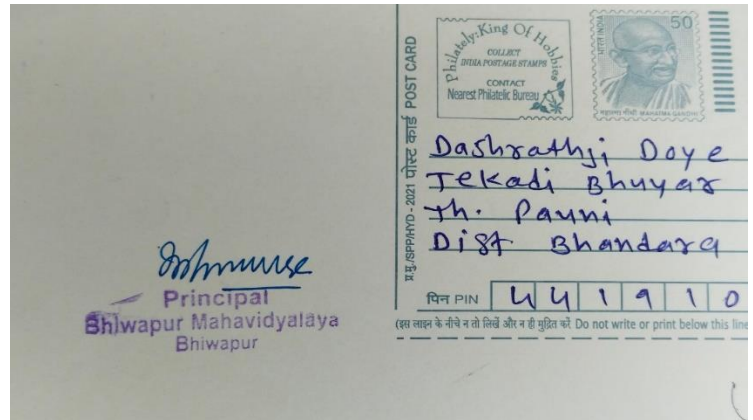 Philately:King Of Hobbies
COLLECT
INDIA POSTAGE STAMPS
CONTACT
Nearest Philatelic Bureau
भारत INDIA
50
महात्मा गाँधी MAHATMA GANDHI
प्र.मु./SPP/HYD - 2021 पोस्ट कार्ड POST CARD
Dashrathji Doye
Tekadi Bhuyar
Th. Pauni
Dist Bhandara
पिन PIN 441910
(इस लाइन के नीचे न तो लिखें और न ही मुद्रित करें Do not write or print below this line
Principal
Bhiwapur Mahavidyalaya
Bhiwapur